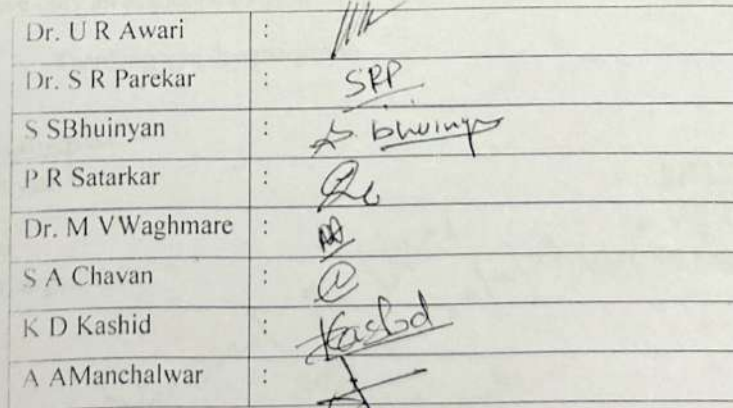 Dr. U R Awari :
Dr. S R Parekar : SRP
S SBhuinyan : S. Bhuinya
P R Satarkar :
Dr. M VWaghmare :
S A Chavan :
K D Kashid : Kashid
A AManchalwar :